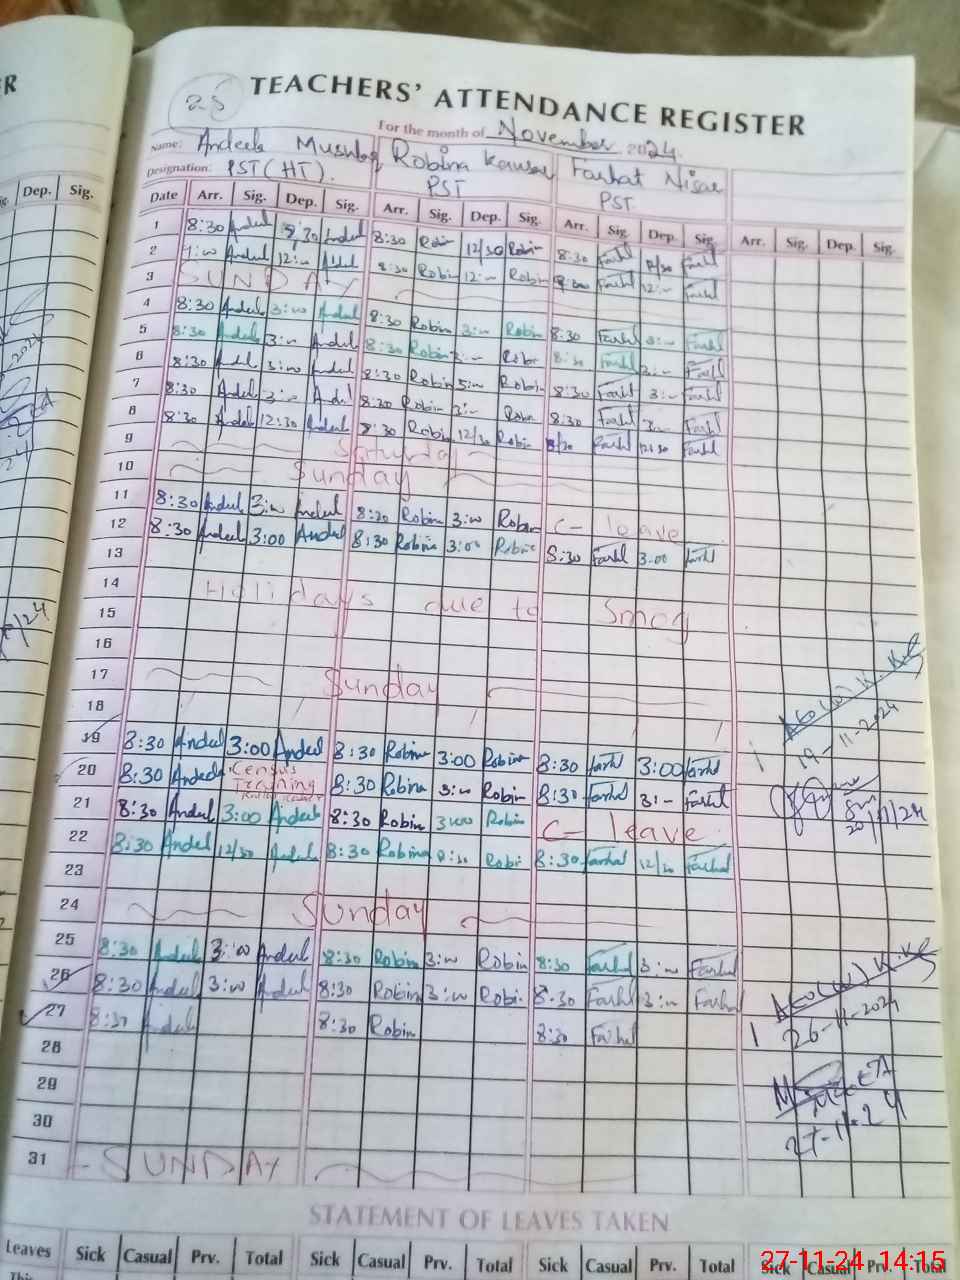 ER
TEACHERS' ATTENDANCE REGISTER
25
For the month of November 2024.
Name: Andeela Mushtaq Robina Kausar Farhat Nisar
Designation: PST (HT). PST PST
Dep. Sig.
Date Arr. Sig. Dep. Sig. Arr. Sig. Dep. Sig. Arr. Sig. Dep. Sig. Arr. Sig. Dep. Sig.
1 8:30 Andeel Andeel 8:30 Robin 12/30 Robin 8:30 Farhl 12/30 Farhl
2 Andeel 12:00 Andeel 8:30 Robin 12:00 Robin Farhl 12:00 Farhl
3 SUNDAY
4 8:30 Andeel 3:00 Andeel 8:30 Robin 3:00 Robin 8:30 Farhl 3:00 Farhl
5 8:30 Andeel 3:00 Andeel 8:30 Robin 3:00 Robin 8:30 Farhl 3:00 Farhl
6 8:30 Andeel 3:00 Andeel 8:30 Robin Robin 8:30 Farhl 3:00 Farhl
7 8:30 Andeel 3:00 Andeel 8:30 Robin 3:00 Robin 8:30 Farhl 3:00 Farhl
8 8:30 Andeel 12:30 Andeel 8:30 Robin 12/30 Robin 8/30 Farhl 12:30 Farhl
9 Saturday
10 Sunday
11 8:30 Andeel 3:00 Andeel 8:30 Robin 3:00 Robin C- leave
12 8:30 Andeel 3:00 Andeel 8:30 Robina 3:00 Robin 8:30 Farhl 3:00 Farhl
13
14 Holidays due to Smog
15
16
17 Sunday
18
19 8:30 Andeel 3:00 Andeel 8:30 Robina 3:00 Robina 8:30 Farhl 3:00 Farhl
20 8:30 Andeela Census Training 8:30 Robina 3:00 Robin 8:30 Farhl 3:00 Farhl
21 8:30 Andeel 3:00 Andeel 8:30 Robin 3:00 Robin C- leave
22 8:30 Andeel 12/30 Andeel 8:30 Robina Robi 8:30 Farhal 12/30 Farhal
23
24 Sunday
25 8:30 Andeel 3:00 Andeel 8:30 Robin 3:00 Robin 8:30 Farhal 3:00 Farhal
26 8:30 Andeel 3:00 Andeel 8:30 Robin 3:00 Robi 8:30 Farhl 3:00 Farhl
27 8:30 Andeel 8:30 Robin 8:30 Farhal
28
29
30
31 SUNDAY
AEO(W) K.K.
19-11-2024
20/11/24
AEO(W) K.K.
26-11-2024
MEA
27-11-24
STATEMENT OF LEAVES TAKEN
Leaves Sick Casual Prv. Total Sick Casual Prv. Total Sick Casual Prv. Total Sick Casual Prv. Total
This
27-11-24 14:15